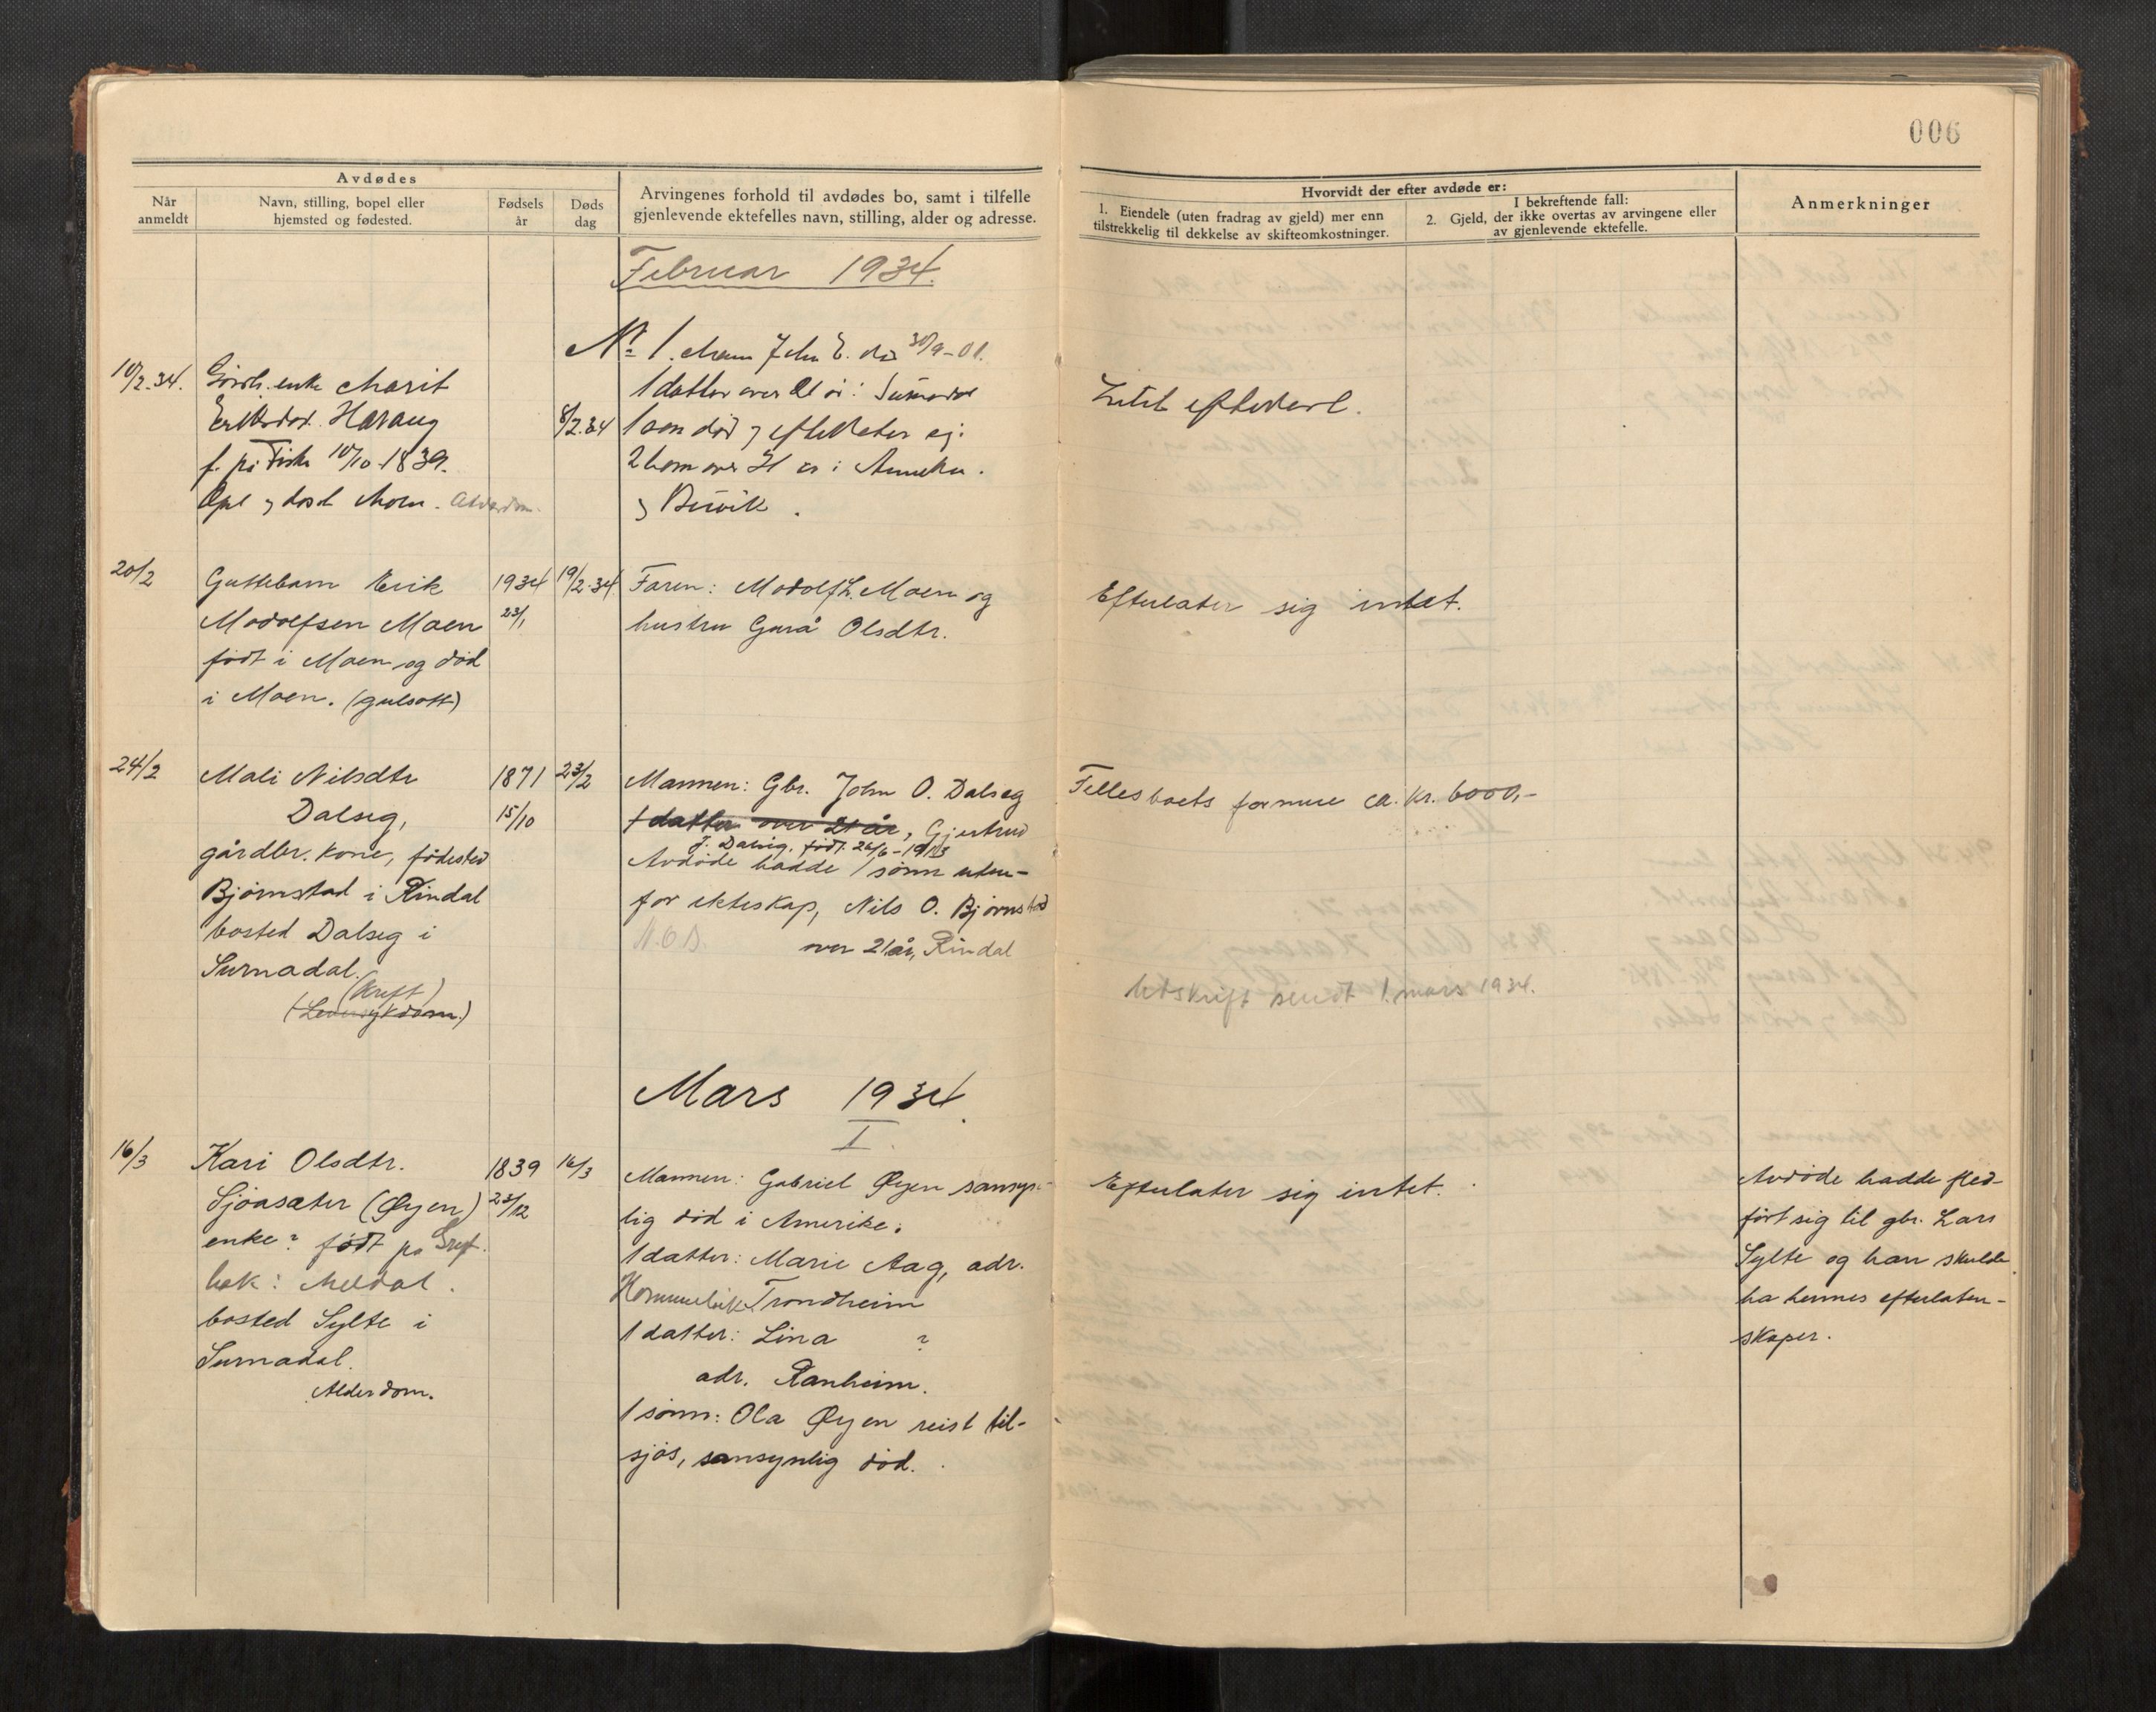 006
Avdødes
Når anmeldt
Navn, stilling, bopel eller hjemsted og fødested.
Fødsels år
Døds dag
Arvingenes forhold til avdødes bo, samt i tilfelle gjenlevende ektefelles navn, stilling, alder og adresse.
Hvorvidt der efter avdøde er:
1. Eiendele (uten fradrag av gjeld) mer enn tilstrekkelig til dekkelse av skifteomkostninger.
I bekreftende fall:
2. Gjeld, der ikke overtas av arvingene eller av gjenlevende ektefelle.
Anmerkninger
Februar 1934.
No 1. Mann John E. død 30/9-01.
10/2.34.
enke Marit
Harang
10/10-1839.
8/2.34
1 datter over 21 år: Surnadal
1 søn død
2 barn over 21 år i Amerika.
20/2
Guttebarn Erik
Modolfsen Moen
født i Moen og død
i Moen. (gulsott)
1934
23/1
19/2.34
Faren: Modolf L. Moen og
hustru Gurå Olsdtr.
Efterlater sig intet.
24/2
Mali Nilsdtr
Dalseg,
gårdbr. kone, fødested
Bjørnstad i Rindal
bosted Dalseg i
Surnadal.
(Kreft)
(Leversykdom.)
1871
15/10
23/2
Mannen: Gbr. John O. Dalseg
1 datter over 21 år, Gjertrud
J. Dalseg, født 26/6-1913
Avdøde hadde 1 sønn uten-
for ekteskap, Nils O. Bjørnstad
N.O.B. over 21 år, Rindal
Fellesboets formue ca. kr. 6000,-
Utskrift sendt 1. mars 1934.
Mars 1934.
I.
16/3
Kari Olsdtr.
Sjöasæter (Øyen)
enke? født på Gref-
bosted Sylte i
Surnadal.
Alderdom.
1839
23/12
16/3
Mannen: Gabriel Øyen sansyn-
lig død i Amerika.
1 datter: Marie Aag, adr.
Hommelvik Trondheim
1 datter: Lina ?
adr. Ranheim.
1 sønn: Ola Øyen reist til-
sjös, sansynlig död.
Efterlater sig intet.
Avdøde hadde fled-
fört sig til gbr. Lars
Sylte og han skulde
ha hennes efterlaten-
skaper.